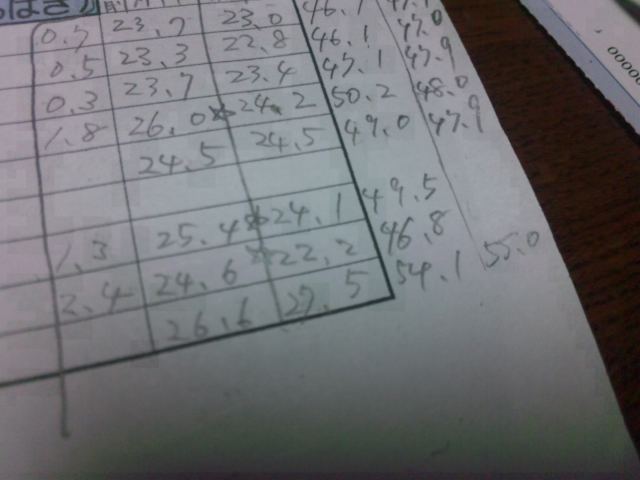 はさ
0.7 23.7 23.0 46.1
0.5 23.3 22.8 46.1 47.0
0.3 23.7 23.4 47.1 47.9
1.8 26.0 24.2 50.2 48.0
24.5 24.5 49.0 47.9
1.3 25.4 24.1 49.5
2.4 24.6 22.2 46.8
26.6 27.5 54.1 55.0
00000